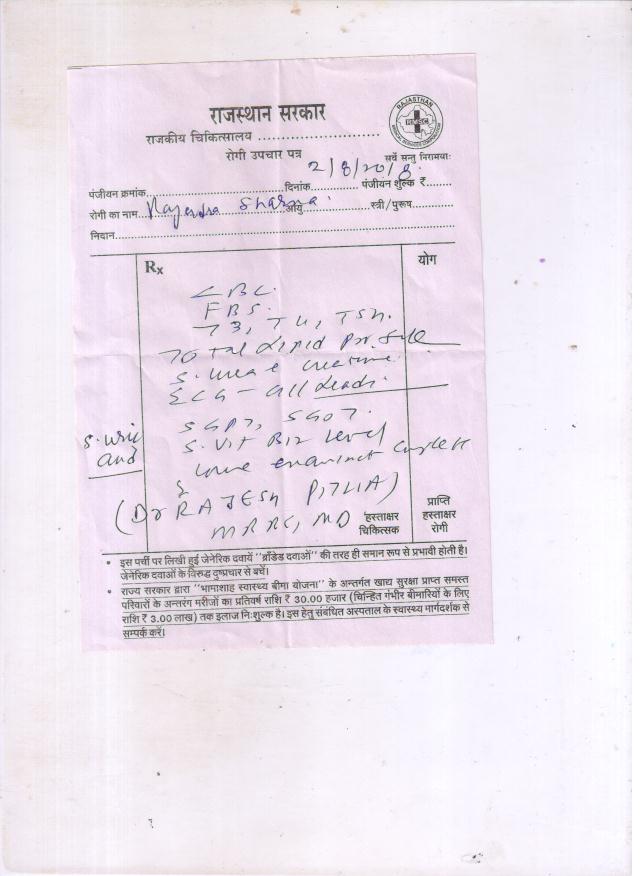 राजस्थान सरकार
राजकीय चिकित्सालय ........................
रोगी उपचार पत्र
RAJASTHAN
RMSC
सर्वे सन्तु निरामयाः
पंजीयन क्रमांक..............दिनांक 2/8/2018 पंजीयन शुल्क ₹......
रोगी का नाम Rajendra Sharma आयु......... स्त्री/पुरूष.........
निदान........................
Rx
योग
CBC
FBS
T3, T4, TSH.
Total Lipid Profile
S. Urea Creatine
ECG - all Leads.
SGPT, SGOT.
S. Vit B12 Level
S. Uric
and
Urine complete
&
(Dr RAJESH PITLIA)
MBBS, MD
हस्ताक्षर
चिकित्सक
प्राप्ति
हस्ताक्षर
रोगी
• इस पर्ची पर लिखी हुई जेनेरिक दवायें "ब्राँडेड दवाओं" की तरह ही समान रूप से प्रभावी होती है।
जेनेरिक दवाओं के विरुद्ध दुष्प्रचार से बचें।
• राज्य सरकार द्वारा "भामाशाह स्वास्थ्य बीमा योजना" के अन्तर्गत खाद्य सुरक्षा प्राप्त समस्त
परिवारों के अन्तरंग मरीजों का प्रतिवर्ष राशि ₹ 30.00 हजार (चिन्हित गंभीर बीमारियों के लिए
राशि ₹ 3.00 लाख) तक इलाज निःशुल्क है। इस हेतु संबंधित अस्पताल के स्वास्थ्य मार्गदर्शक से
सम्पर्क करें।